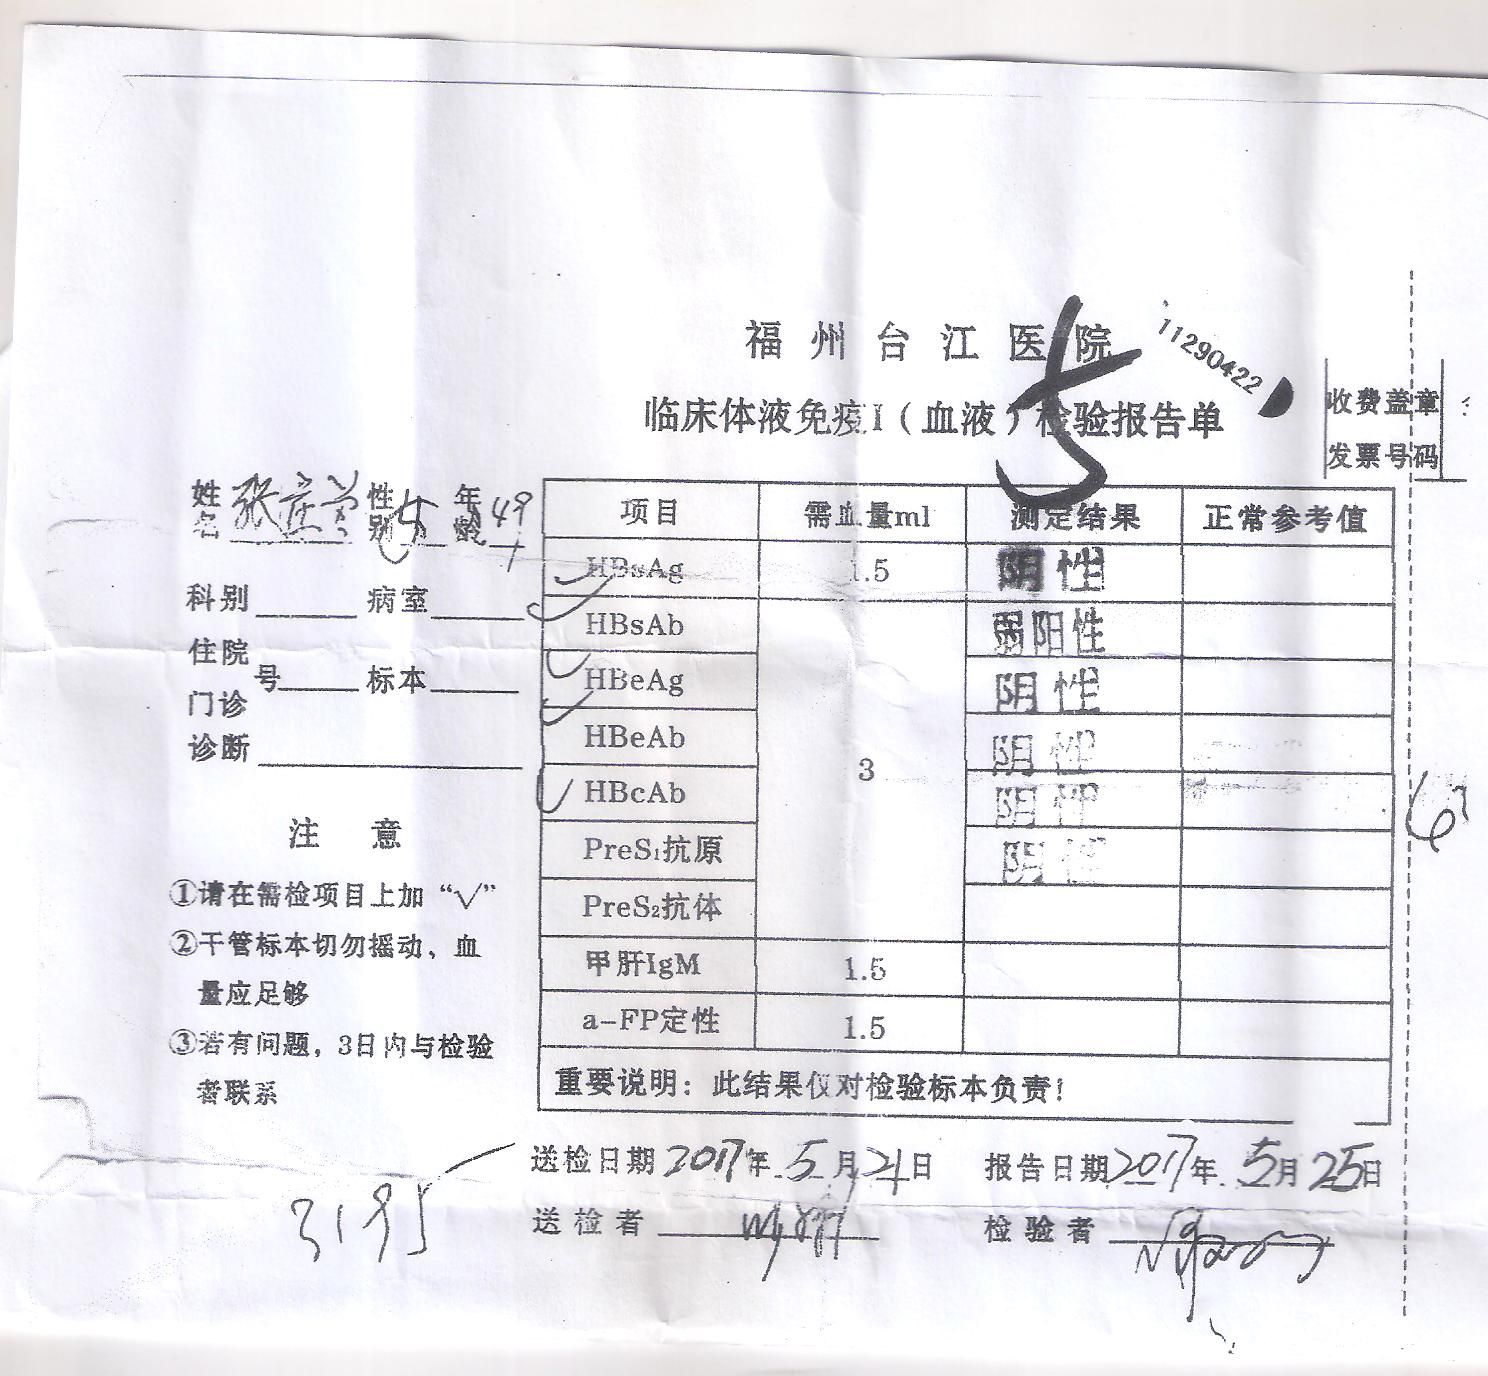 福州台江医院
11290422
临床体液免疫I（血液）检验报告单
收费盖章
发票号码
姓名 张 性别 年龄 49
科别 病室
住院
号 标本
门诊
诊断
注 意
①请在需检项目上加“√”
②干管标本切勿摇动，血
量应足够
③若有问题，3日内与检验
者联系
项目 需血量ml 测定结果 正常参考值
HBsAg 1.5 阴性
HBsAb 弱阳性
HBeAg 阴性
HBeAb 3 阴性
HBcAb 阴性
PreS₁抗原 阴性
PreS₂抗体
甲肝IgM 1.5
a-FP定性 1.5
重要说明：此结果仅对检验标本负责！
送检日期 2017年 5月 21日 报告日期 2017年 5月 25日
送检者 检验者